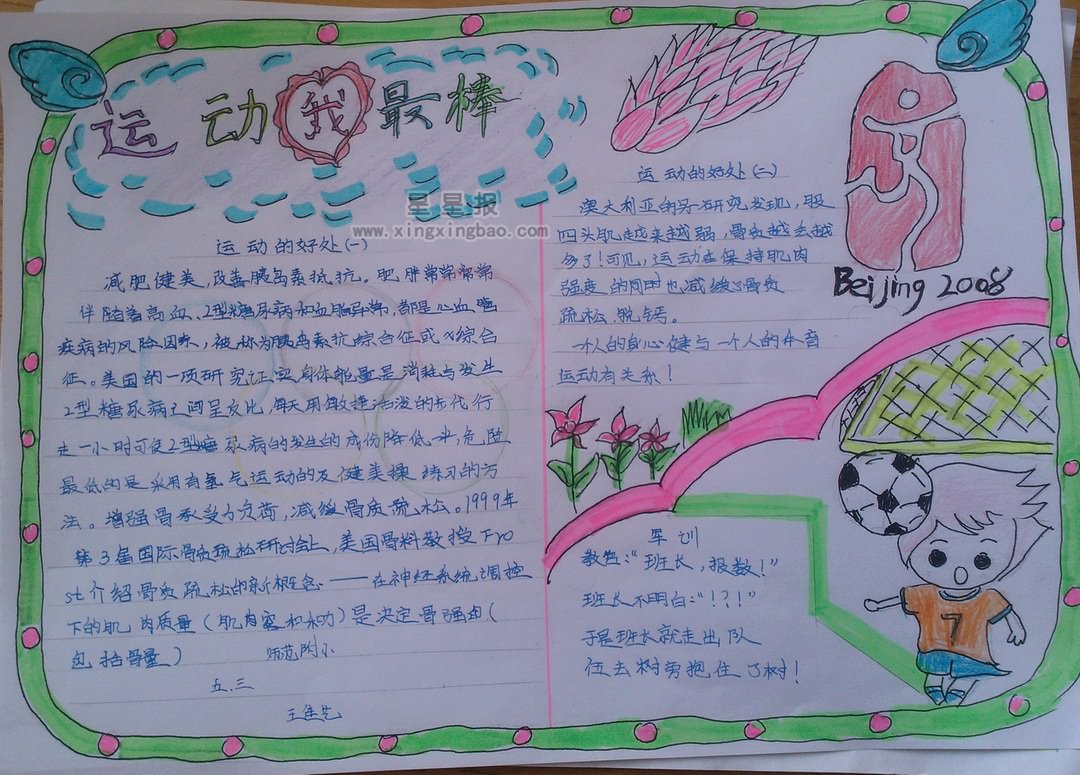 运动我最棒
星星报
www.xingxingbao.com
运动的好处(一)
减肥健美,改善胰岛素抵抗。肥胖常常常常
伴随着高血、2型糖尿病和血脂异常,都是心血管
疾病的风险因素,被称为胰岛素抗综合征或X综合
征。美国的一项研究证实身体能量是消耗与发生
2型糖尿病之间呈反比,每天用敏捷活泼的步代行
走一小时可使2型糖尿病的发生的成份降低一半,危险
最低的是采用有氧气运动的及健美操练习的方
法。增强骨承受力负荷,减缓骨质疏松。1999年
第3届国际骨质疏松研讨会上,美国骨科教授Fro
st介绍骨质疏松的新概念——在神经系统调控
下的肌肉质量(肌肉容和水功)是决定骨强由(
包括骨量)
师范附小
五.三
运动的好处(二)
澳大利亚的另一研究发现,股
四头肌越来越强,骨质越会越
多了!可见,运动在保持肌肉
强度的同时也减缓了骨质
疏松、脱钙。
一个人的身心健与一个人的本音
运动有关系!
Beijing 2008
军训
教官:“班长,报数!”
班长不明白:“!?!”
于是班长就走出队
伍去树旁抱住了树!
7